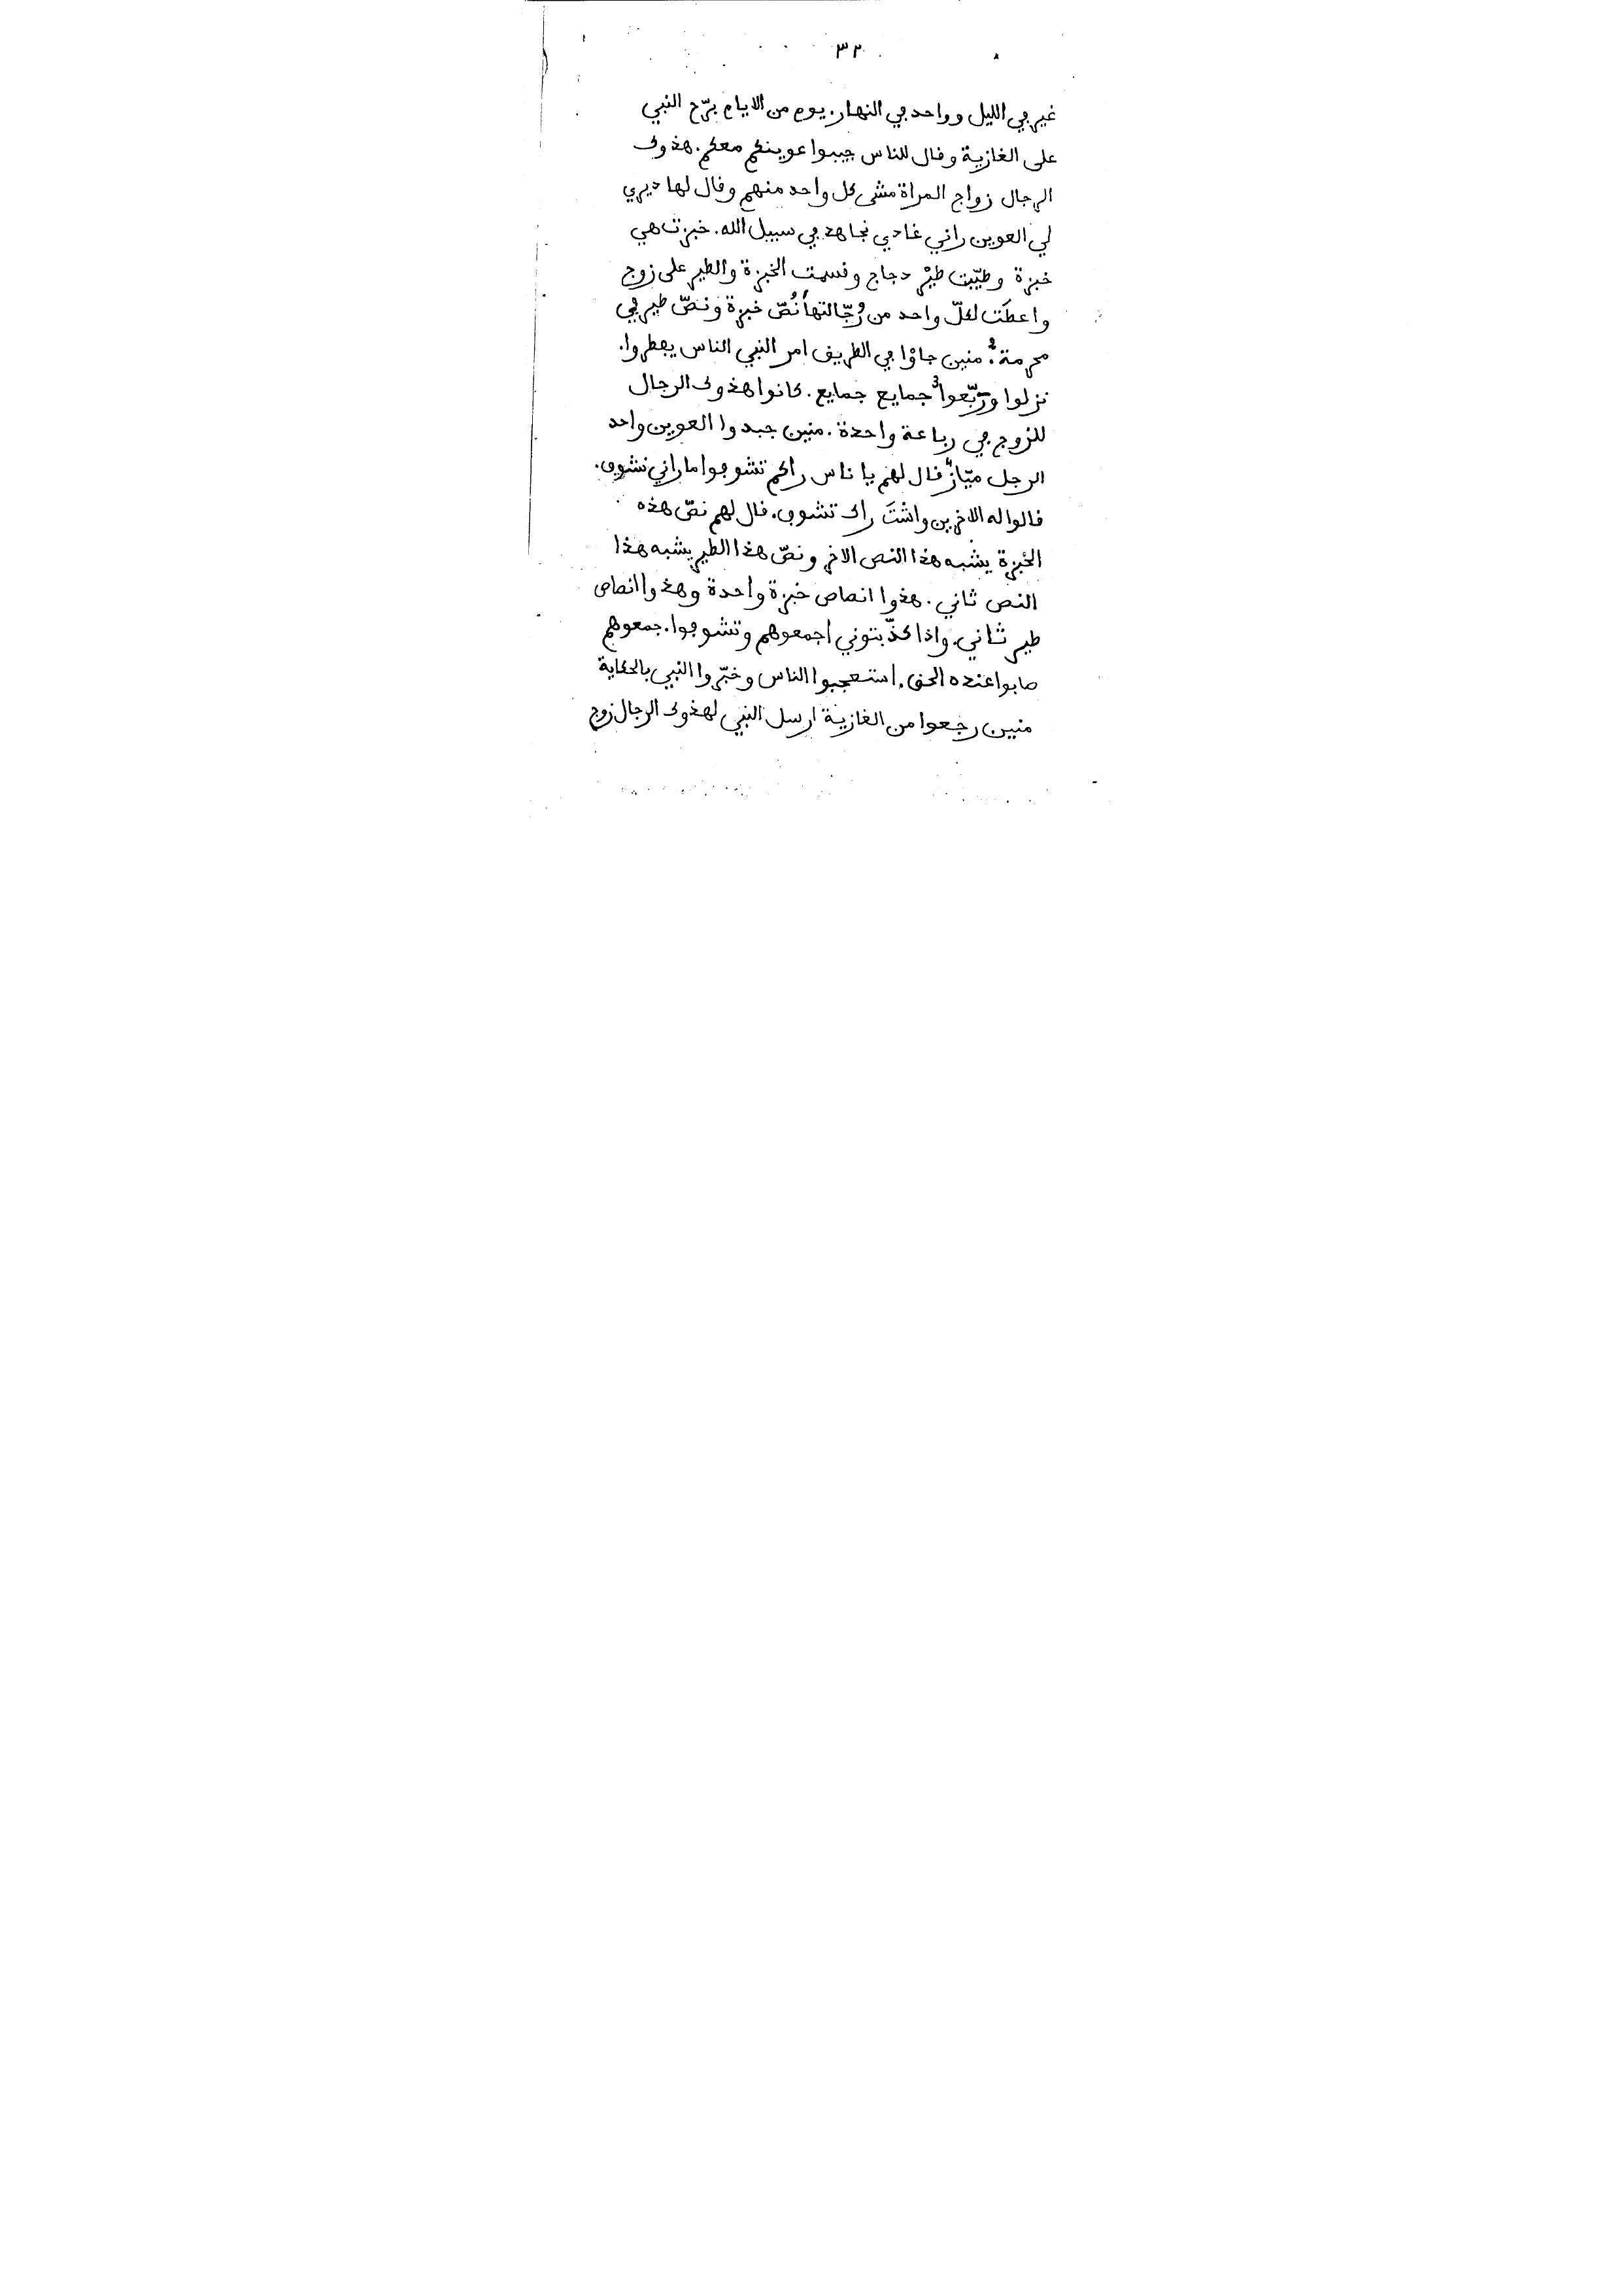 ٣٢
غير في الليل وواحد في النهار. يوم من الايام برّح النبي
على الغازية وقال للناس جيبوا عوينكم معكم. هذوك
الرجال زواج المراة مشى كل واحد منهم وقال لها ديري
لي العوين راني غادي نجاهد في سبيل الله. خبزت هي
خبزة وطيّبت طيْر دجاج وقسمت الخبزة والطير على زوج
واعطَت لكلّ واحد من رُجّالتها نُصّ خبزة ونصّ طير في
محرمة. منين جاوْا في الطريق امر النبي الناس يفطروا.
نزلوا وربّعوا جمايع جمايع. كانوا هذوك الرجال
للزوج في رباعة واحدة. منين جبدوا العوين واحد
الرجل ميّاز قال لهم يا ناس راكم تشوفوا ما راني نشوف.
قالوا له الاخرين واشتَ راك تشوف. قال لهم نصّ هذه
الخبزة يشبه هذا النص الاخر ونصّ هذا الطير يشبه هذا
النص ثاني. هذوا انصاص خبزة واحدة وهذوا انصاص
طير ثاني. واذا كذّبتوني اجمعوهم وتشوفوا. جمعوهم
صابوا عنده الحق. استعجبوا الناس وخبّروا النبي بالحكاية
منين رجعوا من الغازية ارسل النبي لهذوك الرجال زوج